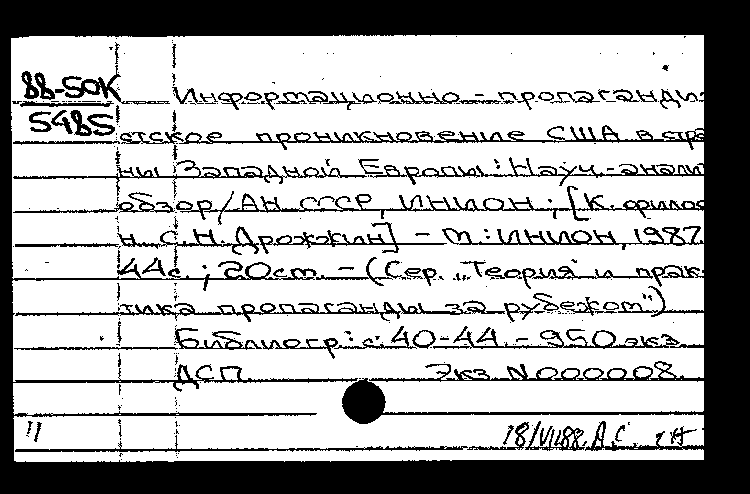 88-50К
5485
Информационно-пропаганди
стское проникновение США в стра
ны Западной Европы: Науч.-анали
обзор/Ан СССР, ИНИОН; [К. филос
н. С.Н. Дрожжин] - М.: ИНИОН, 1987.
44с.; 20см. - (Сер. „Теория и прак-
тика пропаганды за рубежом")
Библиогр.: с. 40-44. - 950 экз.
ДСП. Экз. N000008.
11 18/VII88. А.С.